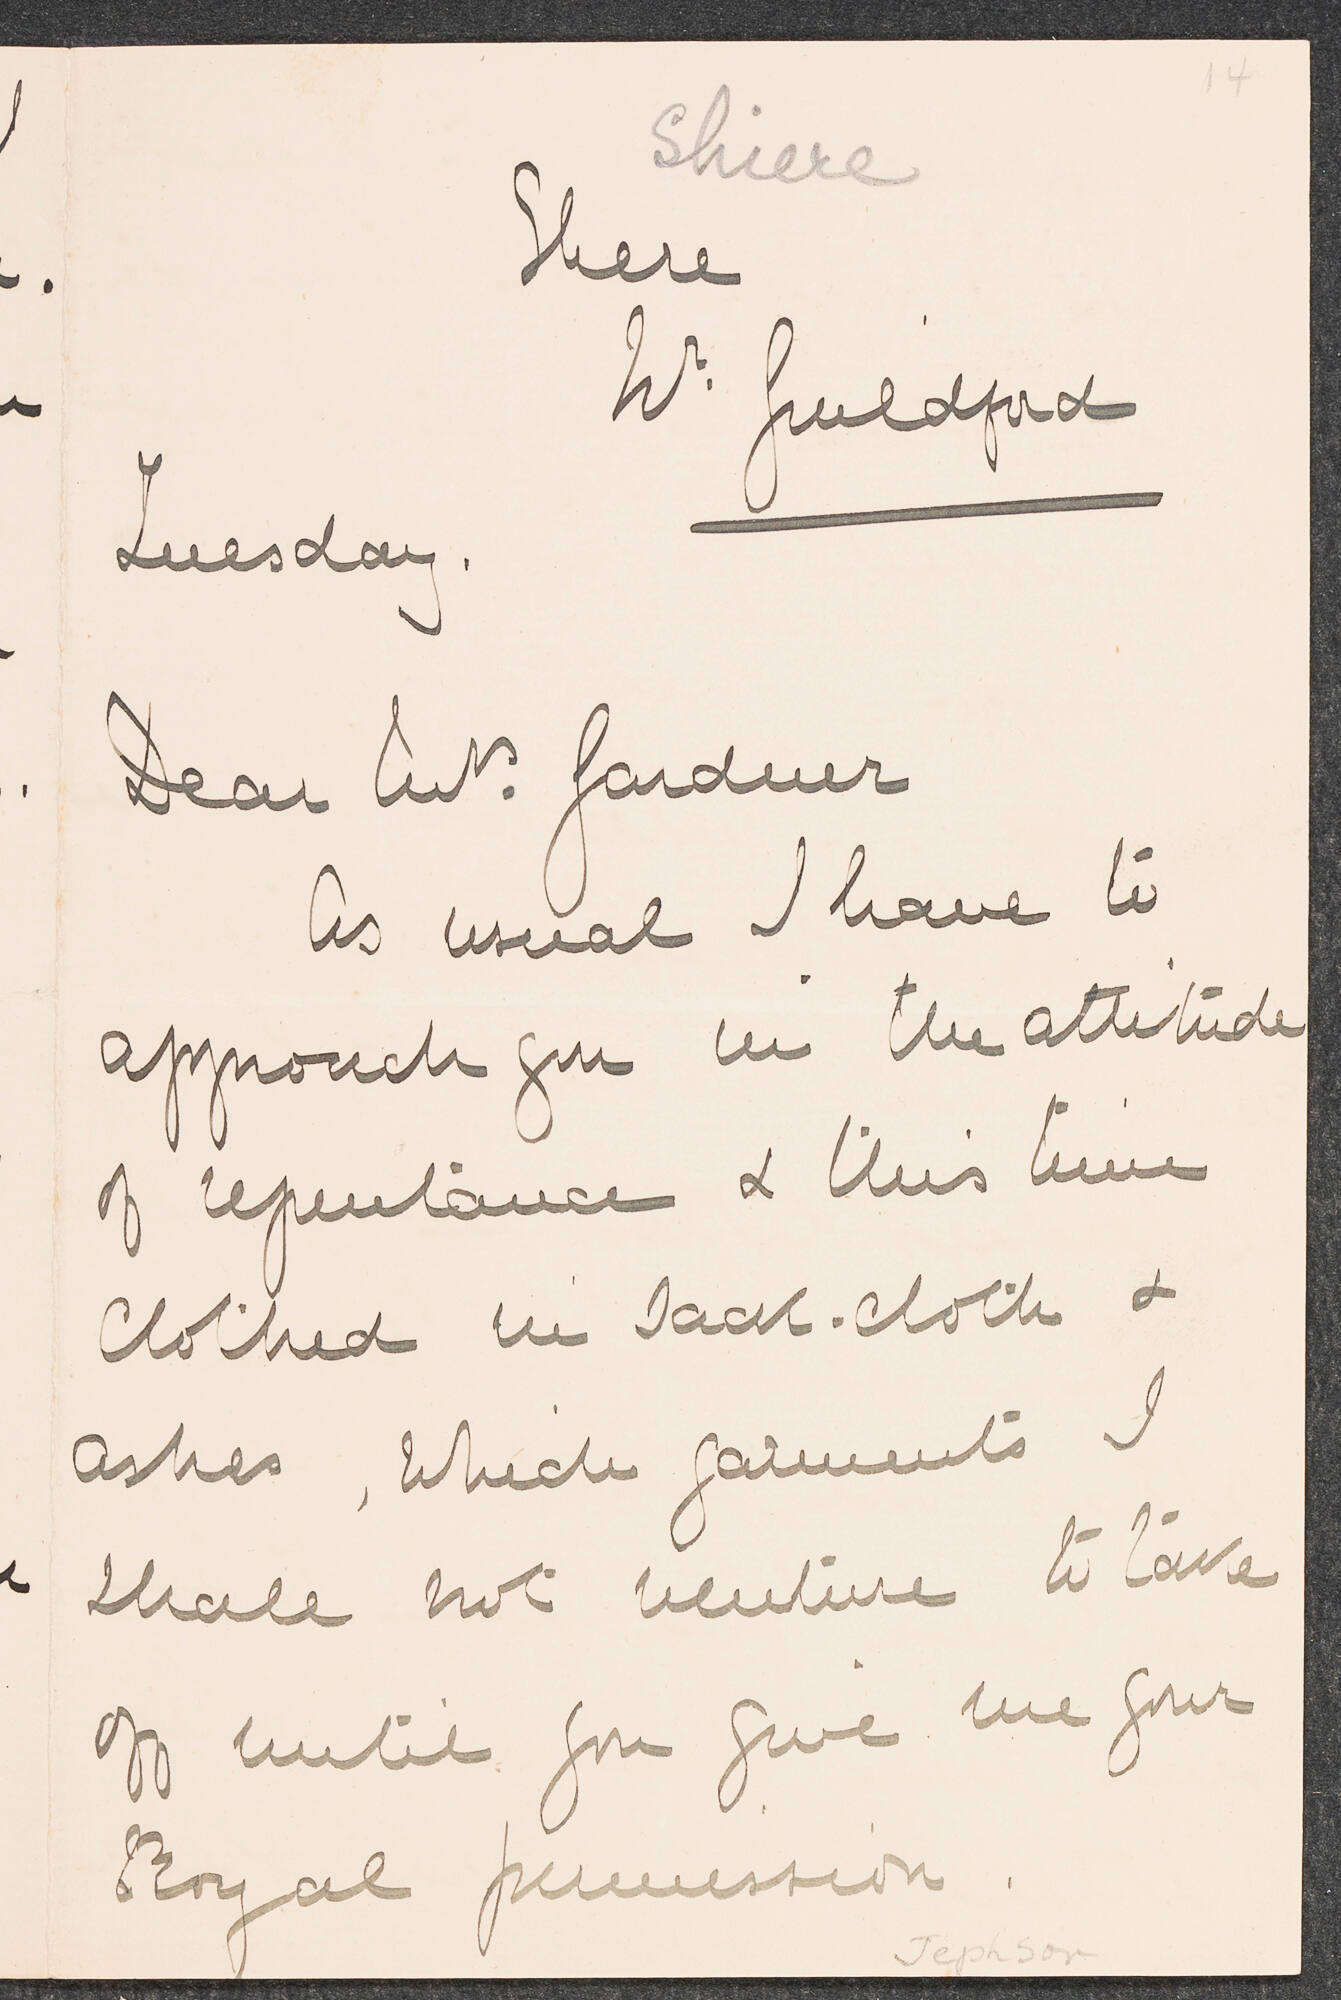 14
Shiere
Shere
Nr. Guildford
Tuesday.
Dear Mrs. Gardner
As usual I have to
approach you in the attitude
of repentance & this time
clothed in sack-cloth &
ashes, which garments I
shall not venture to take
off until you give me your
Royal permission.
Jephson